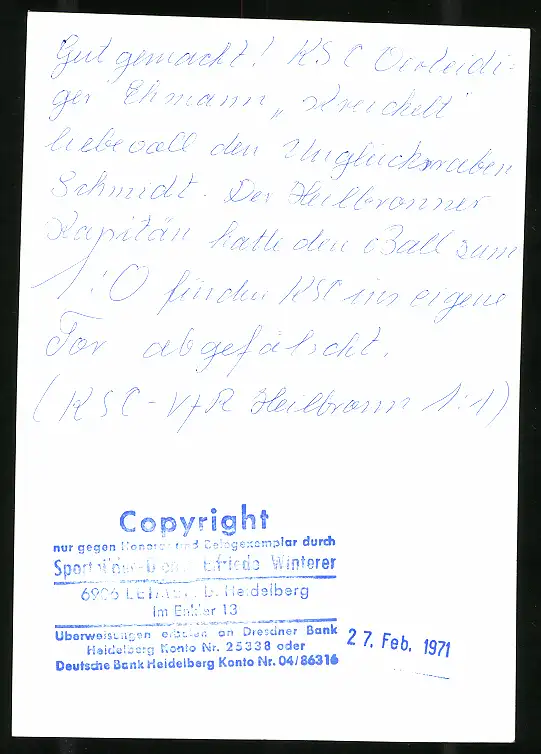 Gut gemacht! KSC Verteidi-
ger Ehmann „streichelt"
liebevoll den Unglücksraben
Schmidt. Der Heilbronner
Kapitän hatte den Ball zum
1:0 für den KSC ins eigene
Tor abgefälscht.
(KSC - VfR Heilbronn 1:1)
Copyright
nur gegen Honorar und Belegexemplar durch
Sport Elfriede Winterer
6906 LEIMEN b. Heidelberg
Im Enkler 13
Überweisungen erbeten an Dresdner Bank
Heidelberg Konto Nr. 25338 oder
Deutsche Bank Heidelberg Konto Nr. 04/86316
27. Feb. 1971